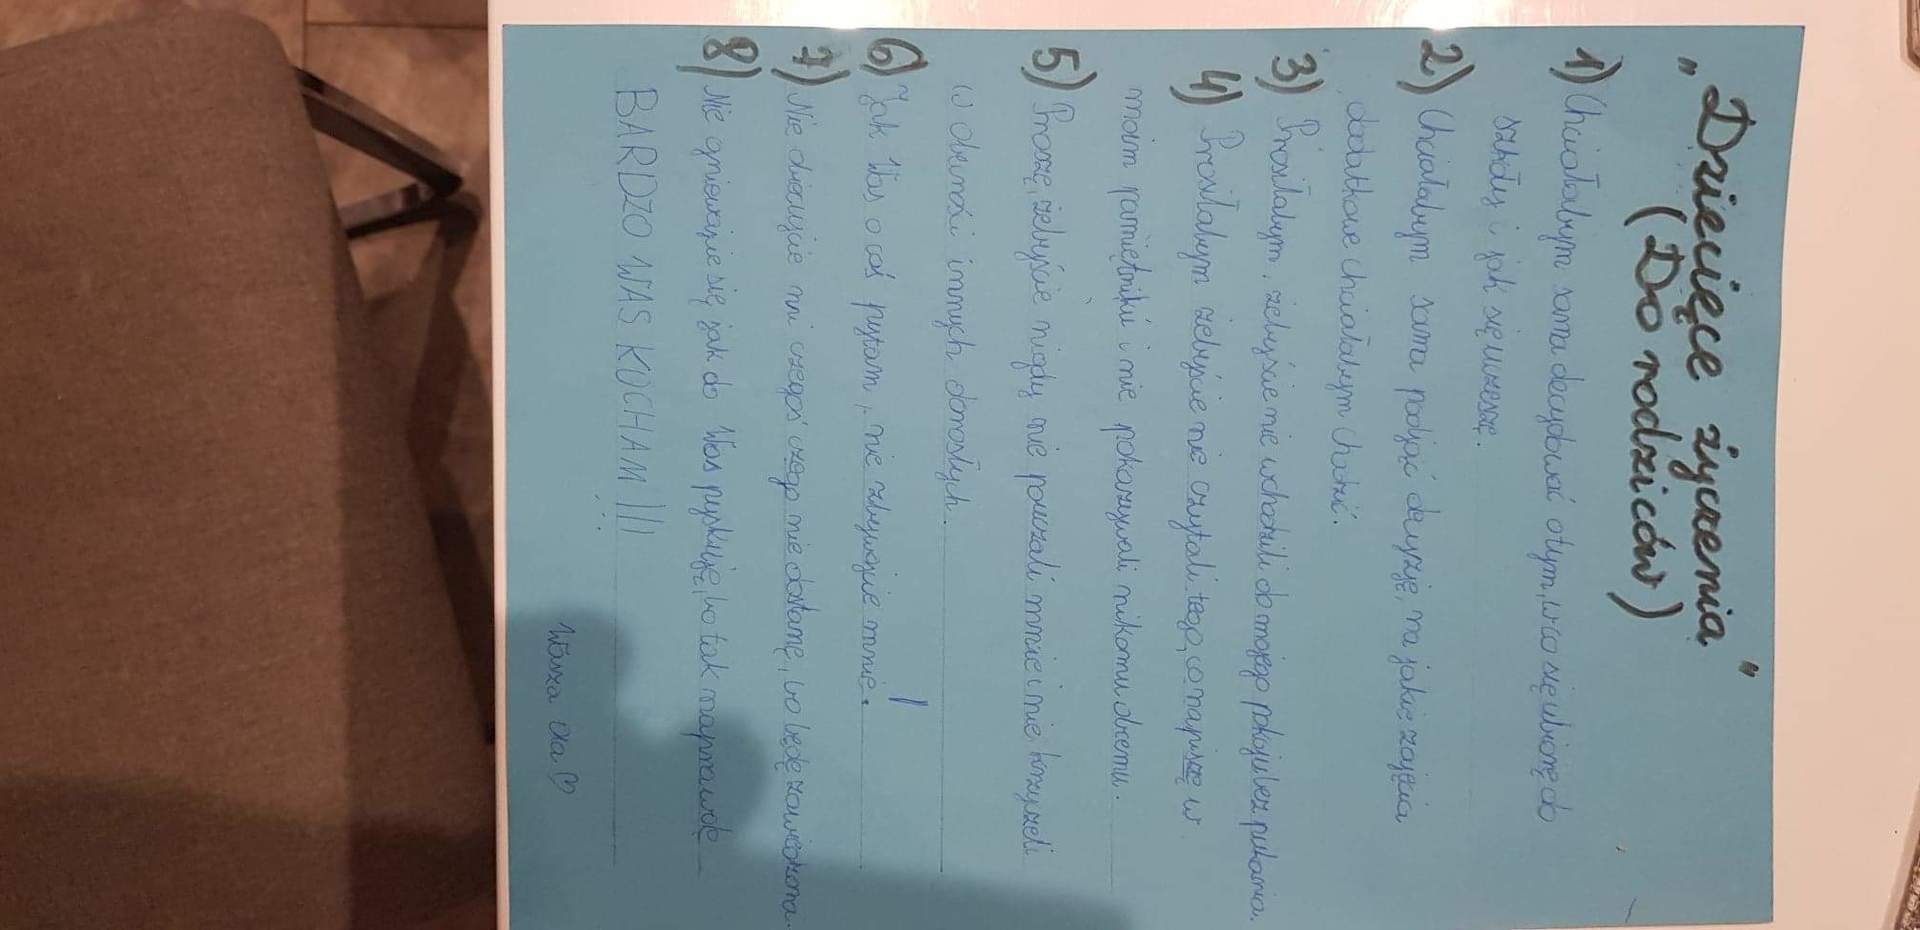 „Dziecięce życzenia"
(Do rodziców)
1) Chciałabym sama decydować o tym, w co się ubiorę do
szkoły i jak się uczeszę.
2) Chciałabym sama podjąć decyzję, na jakie zajęcia
dodatkowe chciałabym chodzić.
3) Prosiłabym, żebyście nie wchodzili do mojego pokoju bez pukania.
4) Prosiłabym żebyście nie czytali tego, co napiszę w
moim pamiętniku i nie pokazywali nikomu innemu.
5) Proszę, żebyście nigdy nie pouczali mnie i nie krzyczeli
w obecności innych dorosłych.
6) Jak Was o coś pytam, nie zbywajcie mnie.
7) Nie obiecujcie mi czegoś czego nie dostanę, bo będę zawiedziona.
8) Nie gniewajcie się jak do Was pyskuję, bo tak naprawdę
BARDZO WAS KOCHAM!!!
Wasza Ola ♡